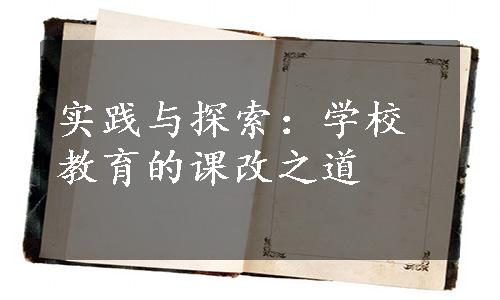 实践与探索：学校
教育的课改之道